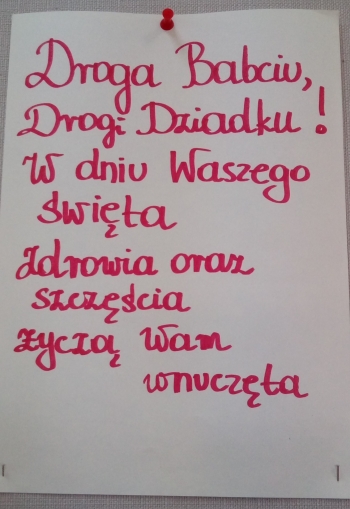 Droga Babciu,
Drogi Dziadku!
W dniu Waszego
święta
Zdrowia oraz
szczęścia
życzą Wam
wnuczęta